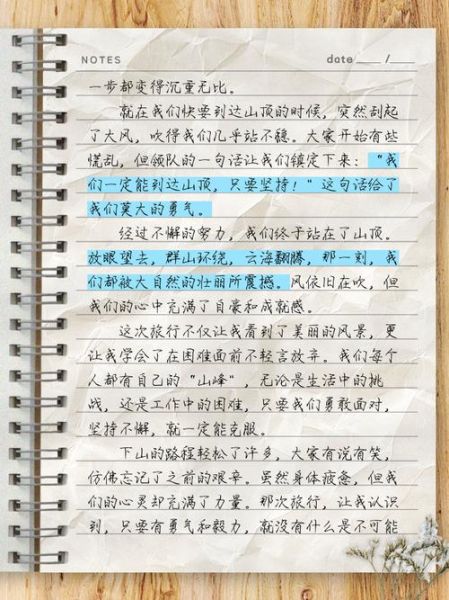 NOTES date ____ /____
一步都变得沉重无比。
就在我们快要到达山顶的时候，突然刮起
了大风，吹得我们几乎站不稳。大家开始有些
慌乱，但领队的一句话让我们镇定下来：“我
们一定能到达山顶，只要坚持！”这句话给了
我们莫大的勇气。
经过不懈的努力，我们终于站在了山顶。
放眼望去，群山环绕，云海翻腾，那一刻，我
们都被大自然的壮丽所震撼。风依旧在吹，但
我们的心中充满了自豪和成就感。
这次旅行不仅让我看到了美丽的风景，更
让我学会了在困难面前不轻言放弃。我们每个
人都有自己的“山峰”，无论是生活中的挑
战，还是工作中的困难，只要我们勇敢面对，
坚持不懈，就一定能克服。
下山的路程轻松了许多，大家有说有笑，
仿佛忘记了之前的艰辛。虽然身体疲惫，但我
们的心灵却充满了力量。那次旅行，让我认识
到，只要有勇气和毅力，就没有什么是不可能